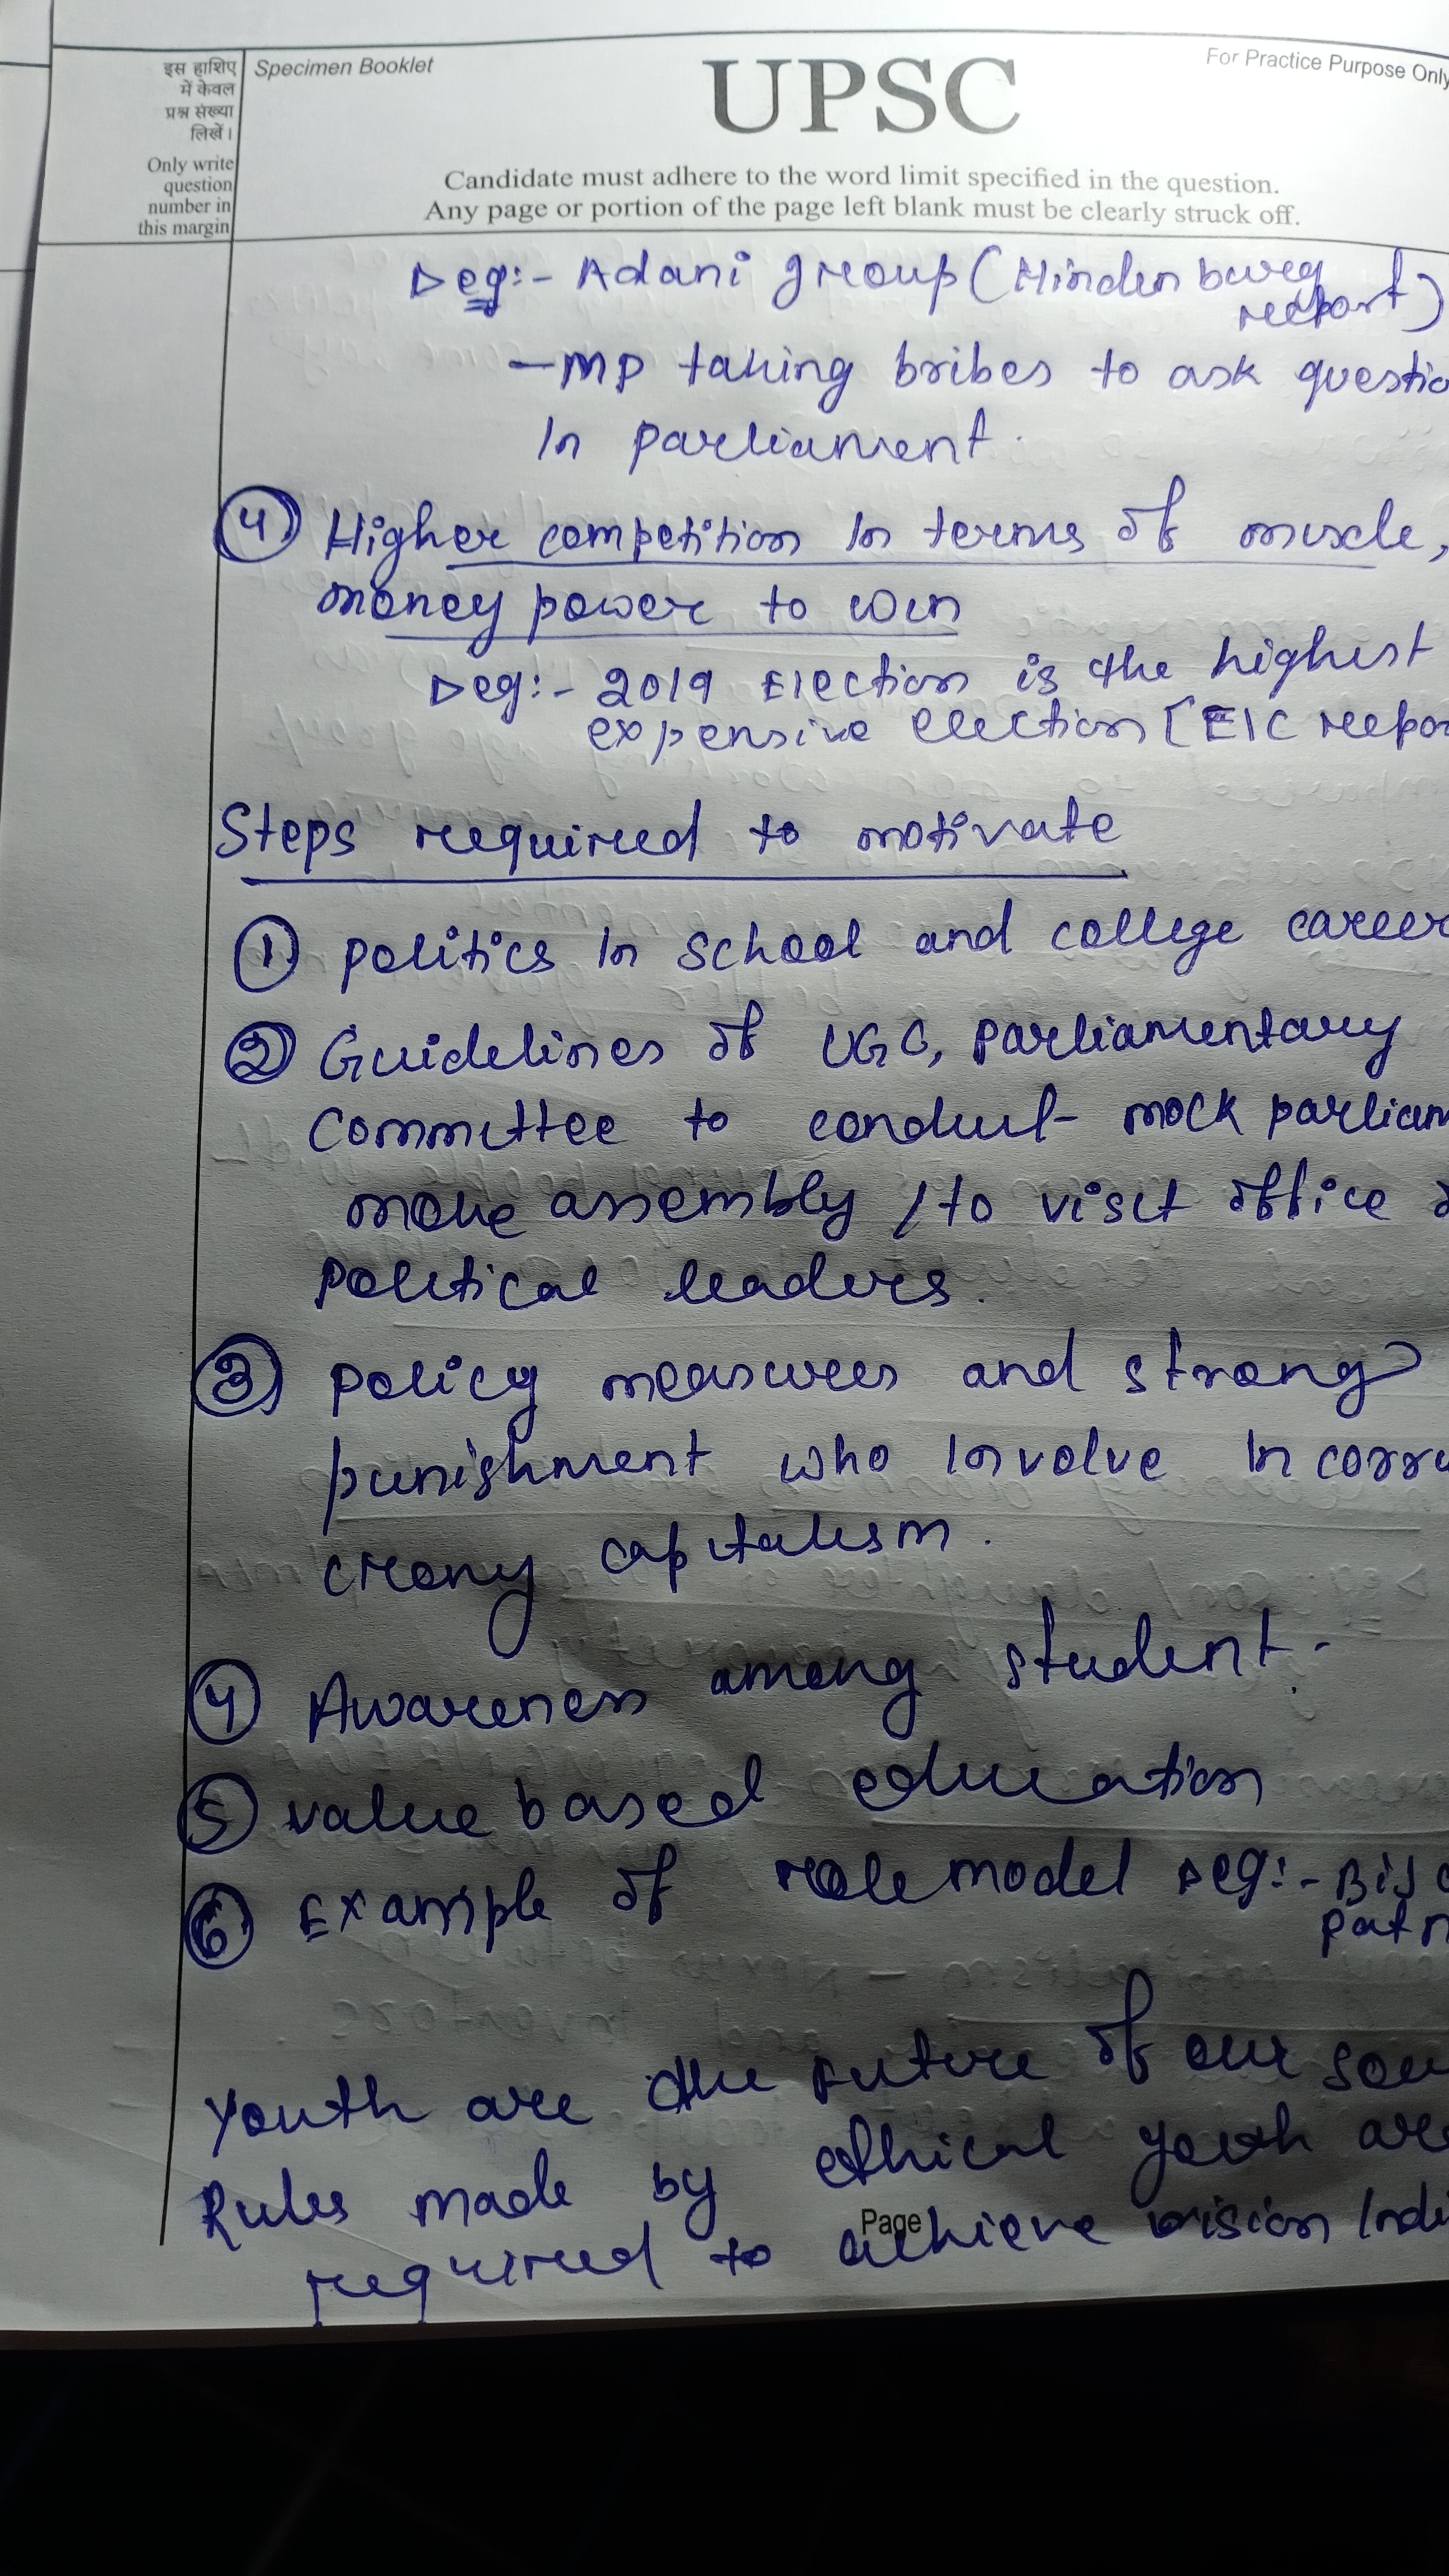 इस हाशिए
में केवल
प्रश्न संख्या
लिखें।
Only write
question
number in
this margin
Specimen Booklet
UPSC
For Practice Purpose Only
Candidate must adhere to the word limit specified in the question.
Any page or portion of the page left blank must be clearly struck off.
eg:- Adani group (Hindenburg
report)
- MP taking bribes to ask questio
In parliament.
4 Higher competition In terms of muscle,
money power to win
eg:- 2019 Election is the highest
expensive election [EIC repor
Steps required to motivate
1 politics In school and college career
2 Guidelines of UGC, parliamentary
committee to conduct mock parliam
assembly / to visit office
political leaders.
3 policy measures and strong
punishment who Involve In corru
crony capitalism.
4 Awareness among student.
5 value based education
6 Example of role model eg:-
Youth are the future of our
Rules made by ethical youth are
Page
required to achieve vision Indi